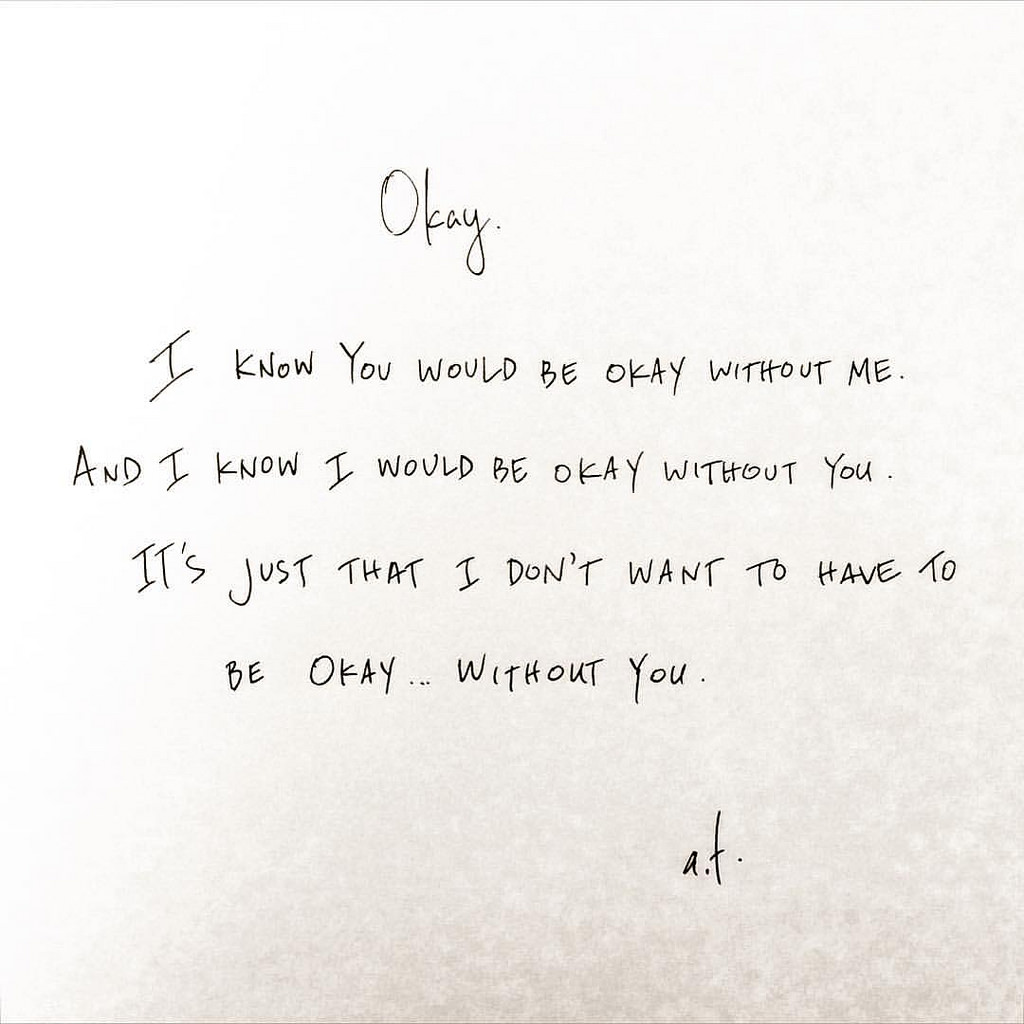 Okay.
I KNOW YOU WOULD BE OKAY WITHOUT ME.
AND I KNOW I WOULD BE OKAY WITHOUT YOU.
IT'S JUST THAT I DON'T WANT TO HAVE TO
BE OKAY... WITHOUT YOU.
a.t.